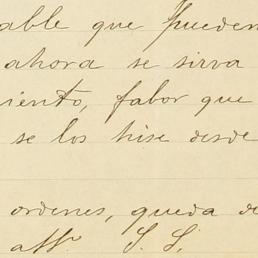 able que pueden
ahora se sirva
iento, fabor que
se los hise desde
ordenes, queda de
affº. S. S.